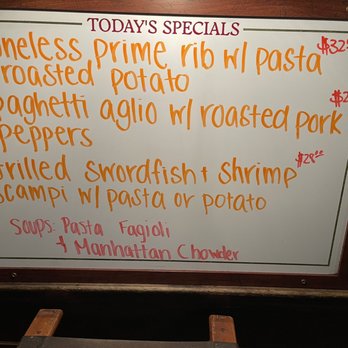 TODAY'S SPECIALS
neless prime rib w/ pasta $32
roasted potato
paghetti aglio w/ roasted pork $2
peppers
rilled swordfish + shrimp $28.00
scampi w/ pasta or potato
Soups: Pasta Fagioli
+ Manhattan Chowder